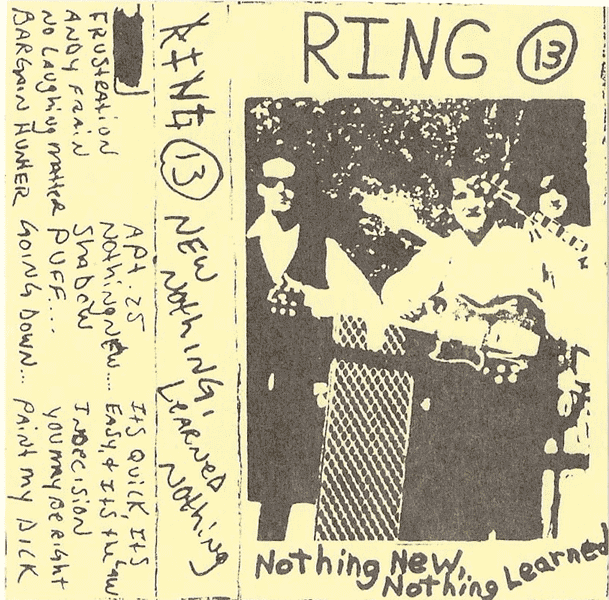 RING 13
Nothing New,
Nothing Learned
RING 13 NEW NOTHING, LEARNED NOTHING
FRUSTRATION
ANDY FRAIN
NO LAUGHING MATTER
BARGAIN HUNTER
APt. 25
NOthINg NEW....
ShADOW
PUFF...
GOING DOWN...
ItS QUICK, ItS
EASY, & ItS thE LAW
INDECISION
YOU MAY BE RIGHT
PAINT MY DICK